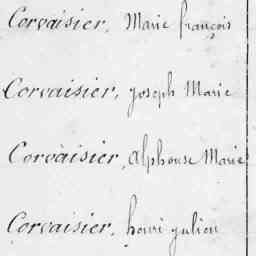 Corvaisier, Marie françois
Corvaisier, joseph Marie
Corvaisier, alphonse Marie
Corvaisier, henri julien